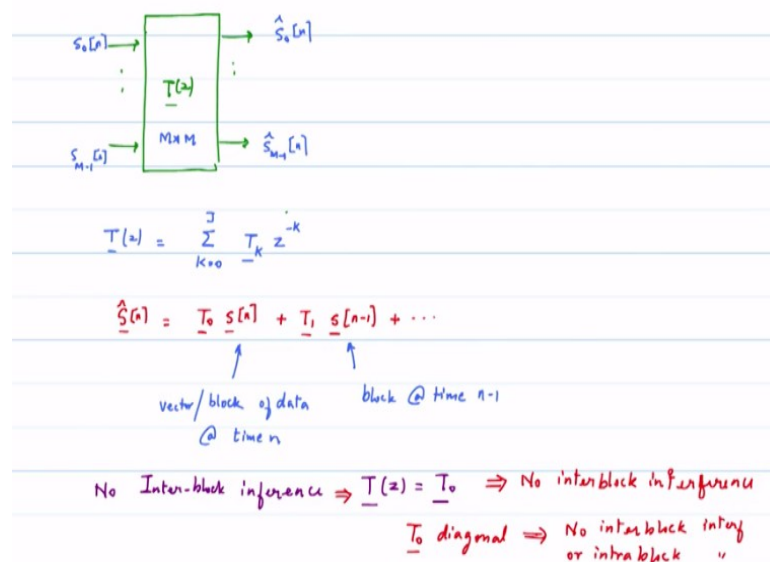 s₀[n] → ŝ₀[n]
⋮ ⋮
T(z)
M×M
s_{M-1}[n] → ŝ_{M-1}[n]
T(z) = Σ_{k=0}^{J} T_k z^{-k}
ŝ[n] = T₀ s[n] + T₁ s[n-1] + ⋯
vector/block of data block @ time n-1
@ time n
No Inter-block inference ⇒ T(z) = T₀ ⇒ No interblock interference
T₀ diagonal ⇒ No interblock interf
or intrablock "